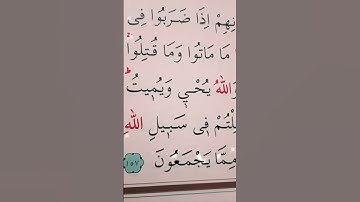 نِهِمْ إِذَا ضَرَبُوا فِى
مَا مَاتُوا وَمَا قُتِلُوا
وَاللهُ يُحْيٖ وَيُمٖيتُ
لْتُمْ فٖى سَبٖيلِ اللهِ
مِمَّا يَجْمَعُونَ ١٥٧